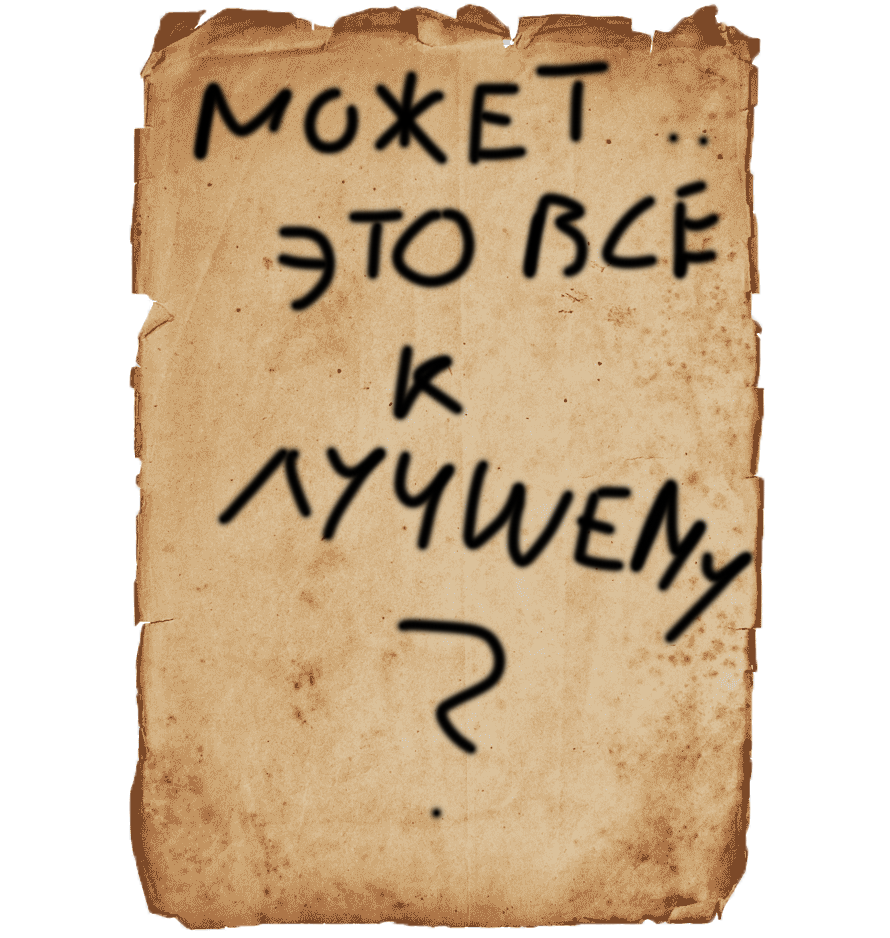 МОЖЕТ..
ЭТО ВСЕ
К
ЛУЧШЕМУ
?